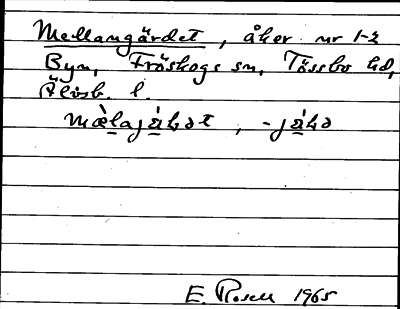 Mellangärdet, åker nr 1-2
Byn, Fröskogs sn, Tössbo hd,
Älvsb. l.
E. Rosell 1965